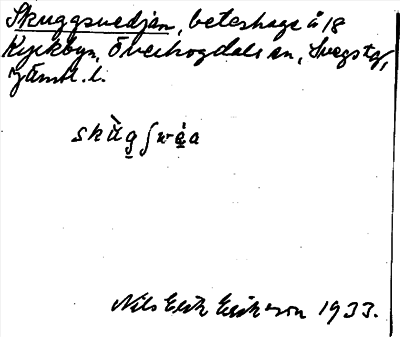 Skuggsvedjan, beteshage å 18
Kyrkbyn, Överhogdals sn, Svegs tg,
Jämtl. l.
skùgʃwèa
Nils Erik Eriksson 1933.